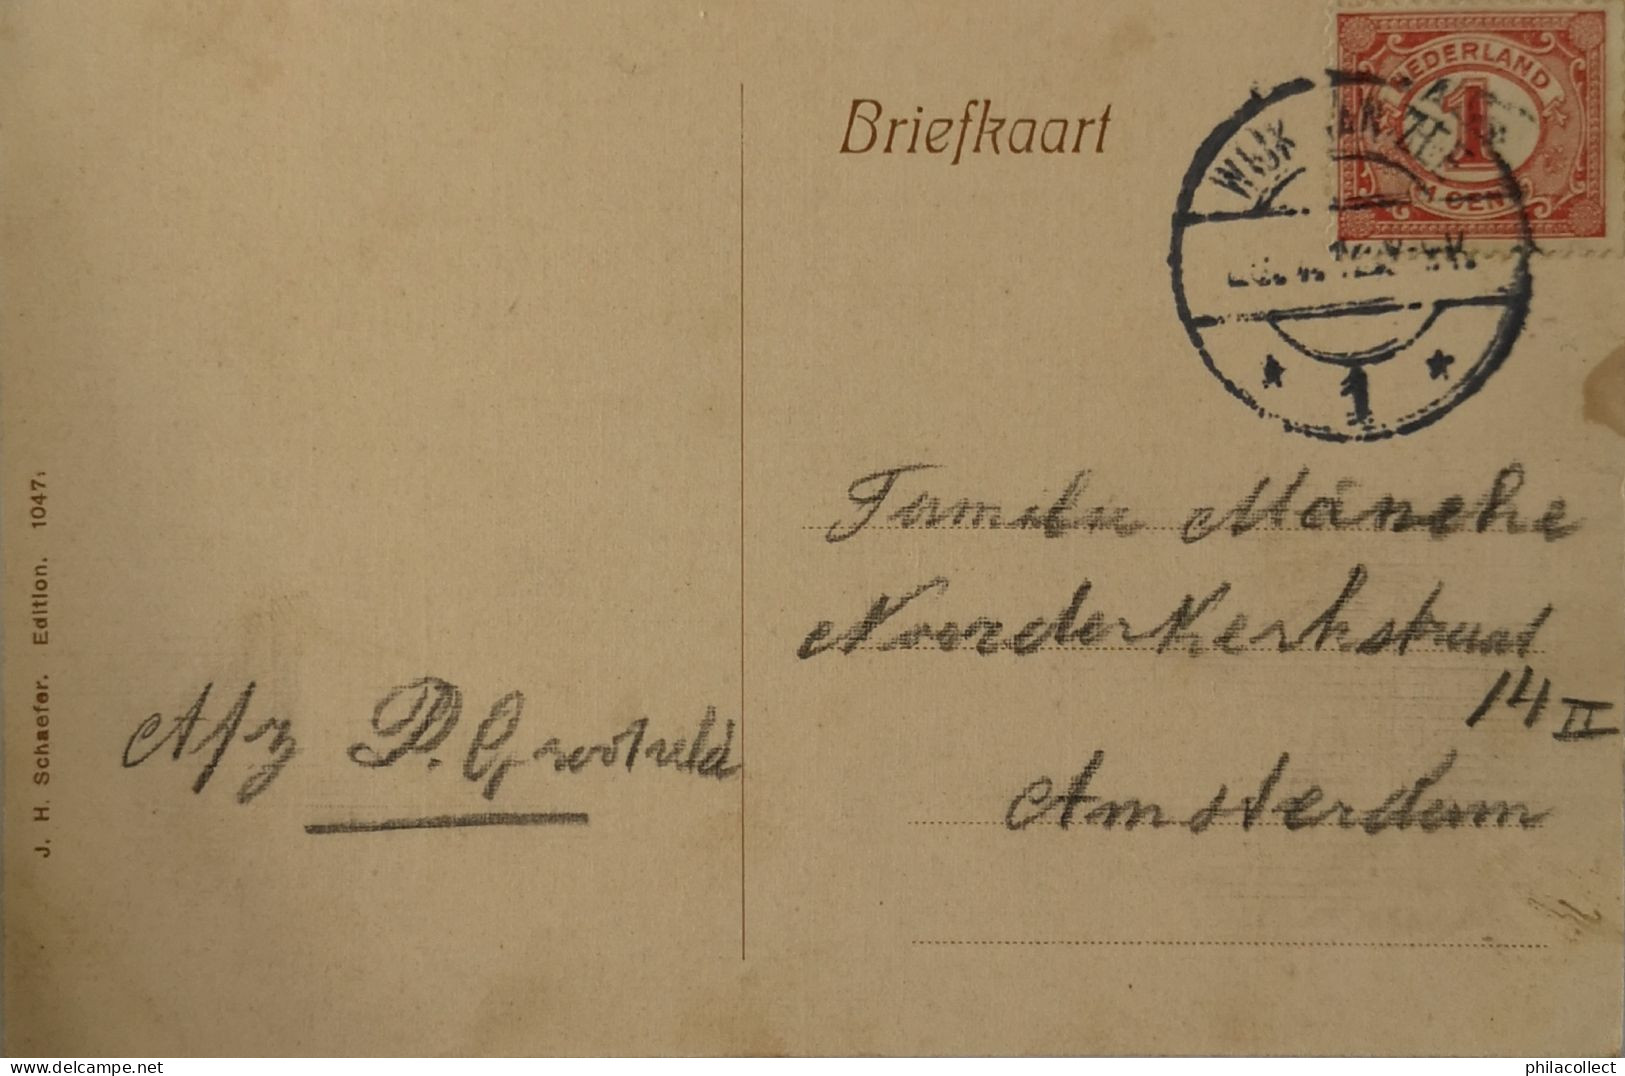 Briefkaart
NEDERLAND
1
CENT
WIJK AAN ZEE
1
Familie Mänche
Noorderkerkstraat
14 II
Amsterdam
Afz P. Grootveld
J. H. Schaefer. Edition. 1047.
delcampe.net
philacollect